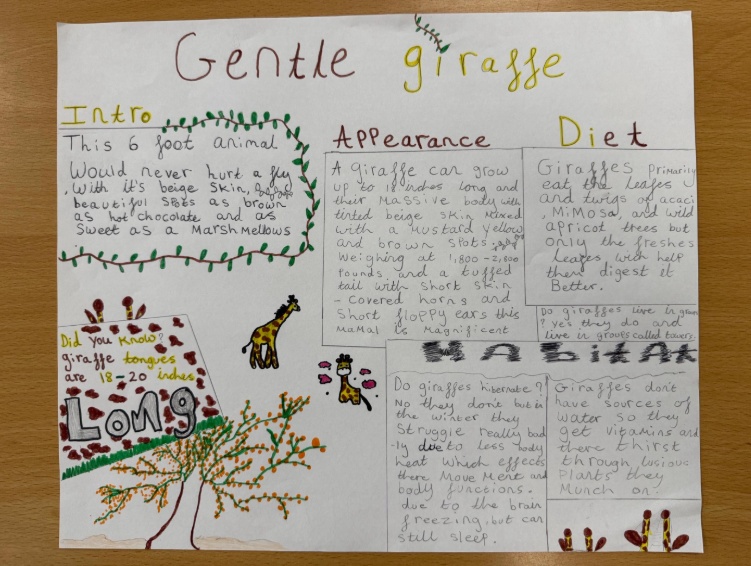 Gentle giraffe
Intro
This 6 foot animal
Would never hurt a fly
. With it's beige skin,
beautiful spots as brown
as hot chocolate and as
Sweet as a Marshmellows
Appearance
A giraffe can grow
up to 18 inches long and
their Massive body with
tinted beige skin Mixed
with a mustard yellow
and brown spots
Weighing at 1,800-2,800
Pounds, and a tuffed
tail with short skin
- covered horns and
Short floppy ears this
MaMal is Magnificent
Diet
Giraffes primarily
eat the leafes
and twigs of acaci
, MiMosa, and wild
apricot trees but
only the freshes
Leafes with help
them digest it
Better.
Do giraffes live in
? yes they do and
live in groups called
Did you know?
giraffe tongues
are 18-20 inches
Long
HABitAt
Do giraffes hibernate?
No they don't but in
the winter they
Struggle really bad
-ly due to less body
heat which effects
there MoveMent and
body functions.
due to the brain
freezing, but can
still sleep.
Giraffes don't
have sources of
water so they
get vitamins and
there thirst
through lusious
Plants they
Munch on.